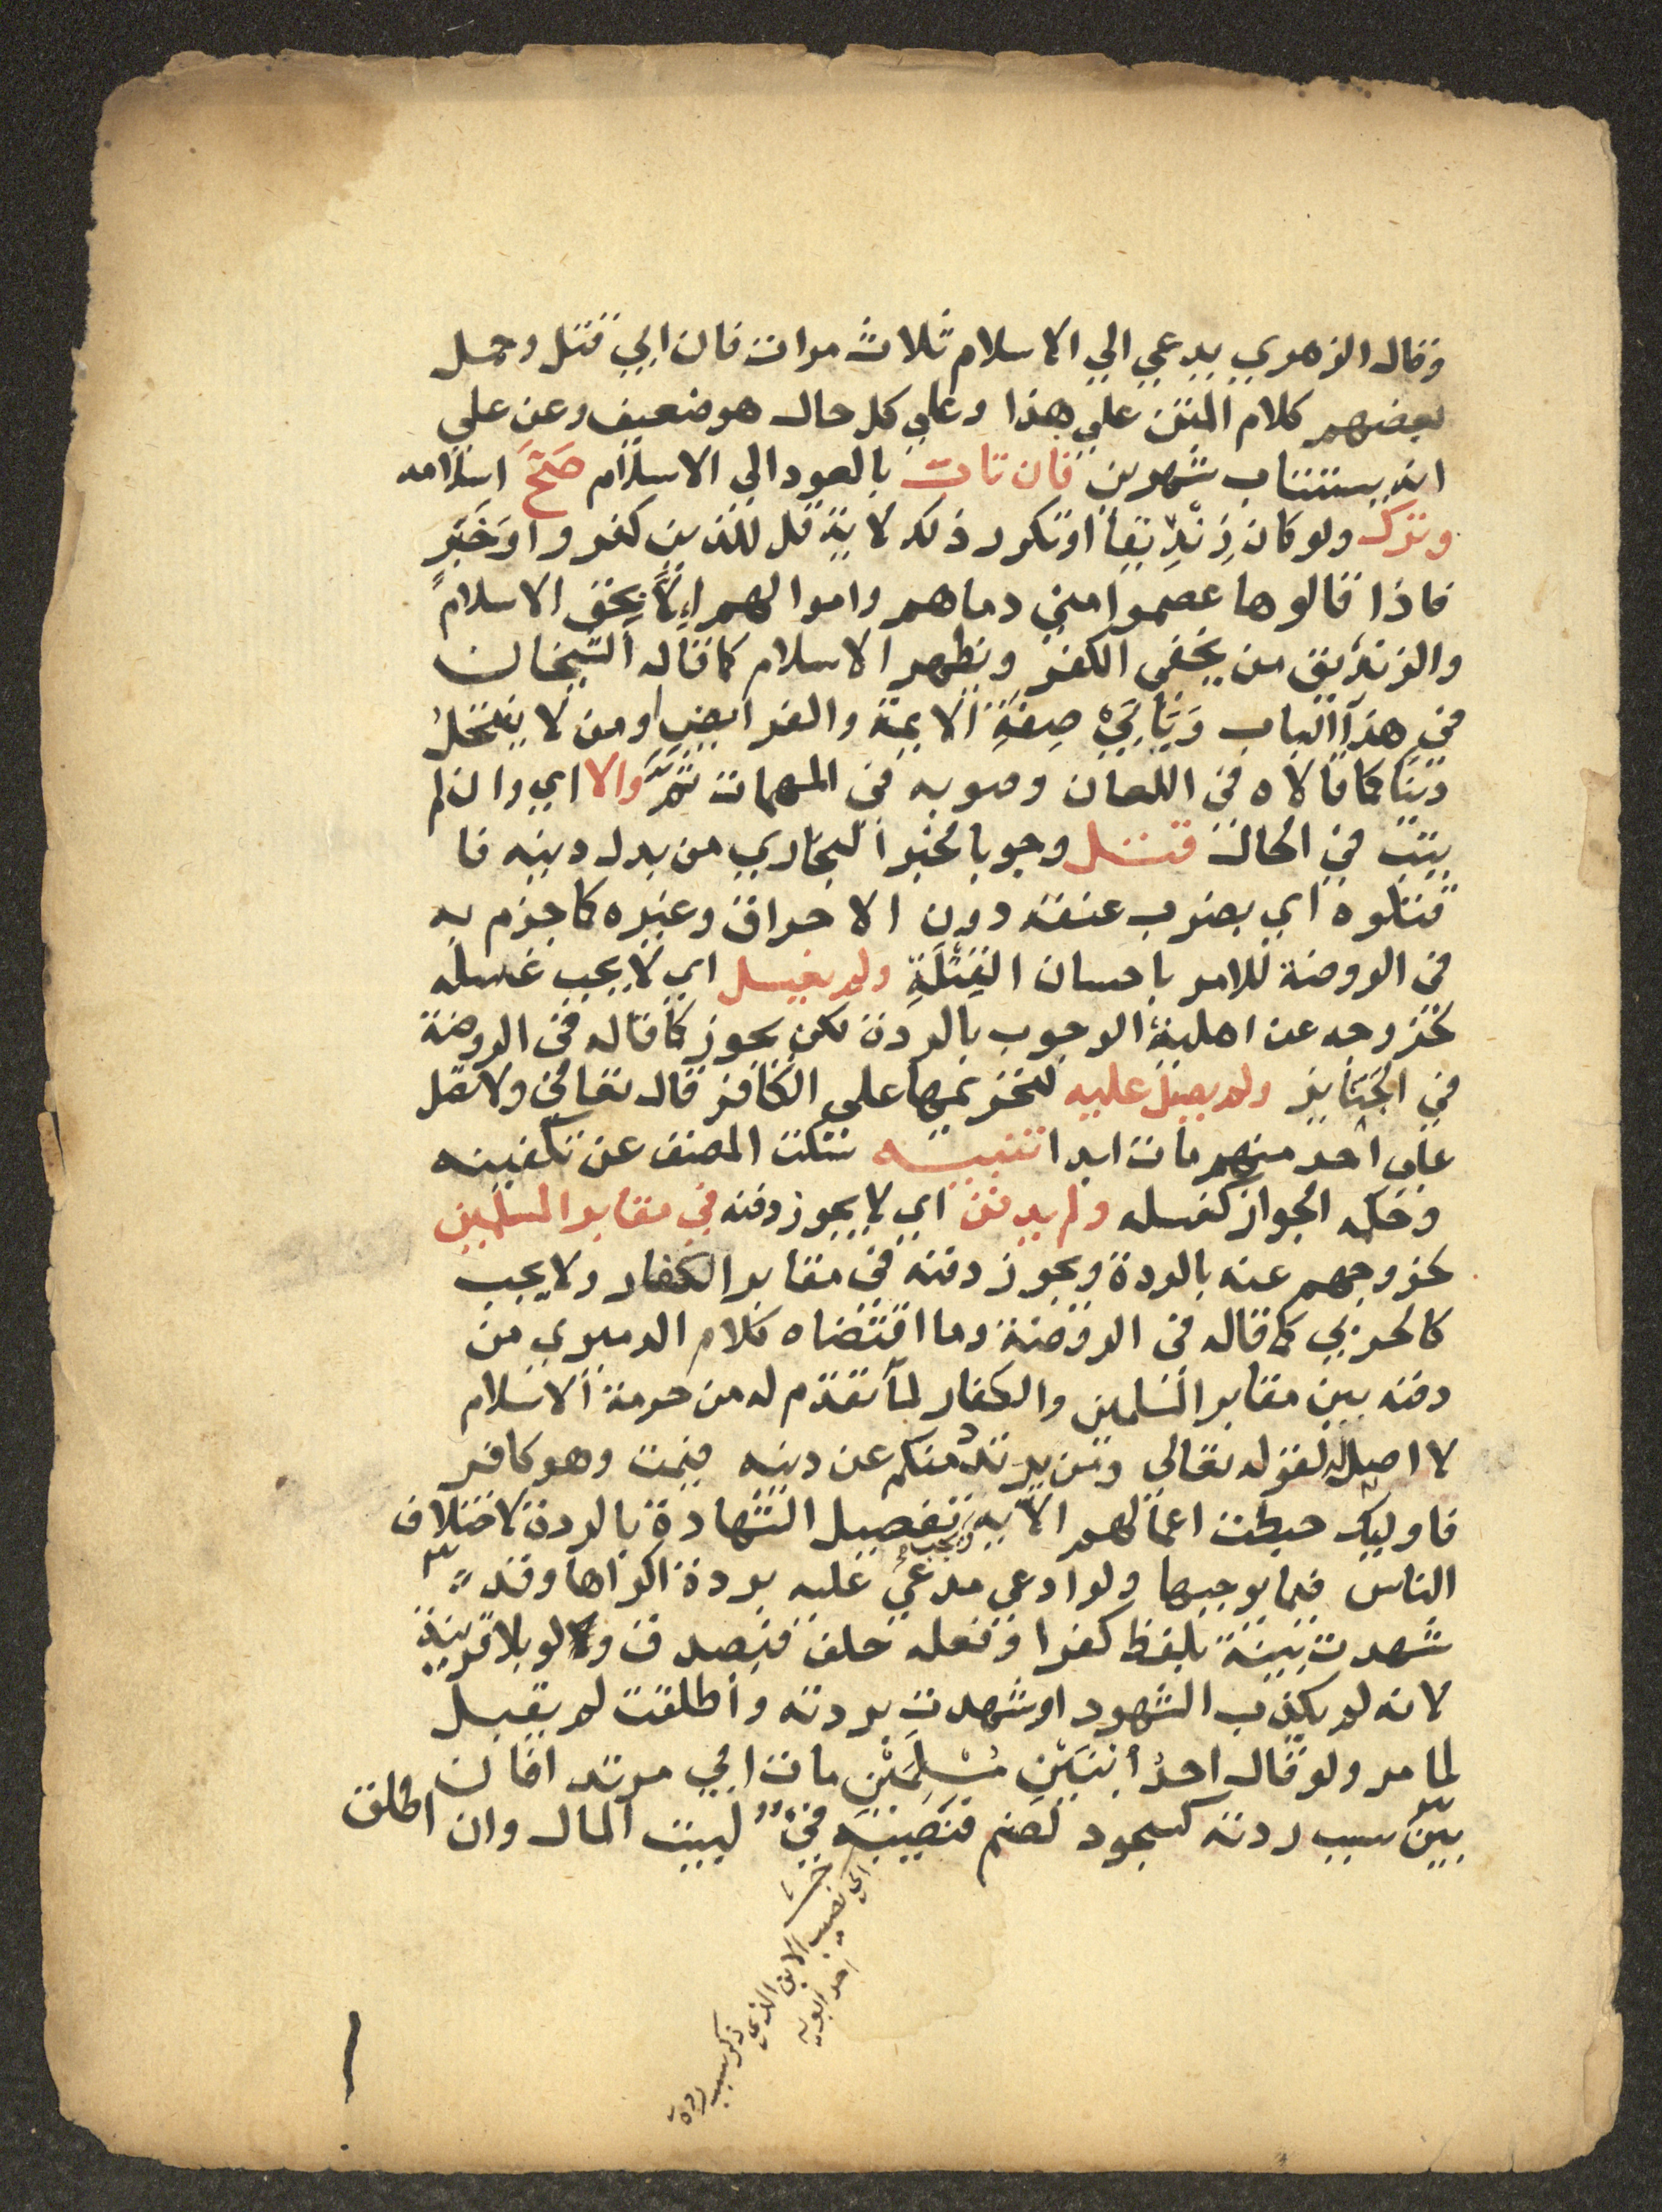 وقال الزهري يدعي الي الاسلام ثلاث مرات فان ابي قتل وحمل
بعضهم كلام المتن علي هذا وعلي كل حال هو ضعيف وعن علي
انه يستتاب شهرين فان تاب بالعود الي الاسلام صَحَّ اسلامه
وترك ولو كان زِنْدِيقاً او تكرر ذلك لاية قل للذين كفروا وَخَبَرِ
فاذا قالوها عصموا مني دماهم واموالهم اِلَّا بحق الاسلام
والزنديق من يخفي الكفر ويظهر الاسلام كما قاله الشيخان
في هذا الباب وَبَابَيْ صِفَةِ الايمة والفرايض او من لا ينتحل
دينا كما قالاه في اللعان وصوبه في المهمات ثَمَّ والا اي وان لم
يتب في الحال قتل وجوبا لخبر البخاري من بدل دينه فا
قتلوه اي بضرب عنقه دون الاحراق وغيره كما جزم به
في الروضة للامر باحسان القِتْلَةِ ولم يغسل اي لا يجب غسله
لخروجه عن اهلية الوجوب بالردة لكن يجوز كما قاله في الروضة
في الجنايز ولم يصل عليه لتحريمها علي الكافر قال تعالي ولا تصل
علي احد منهم مات ابدا تنبيه سكت المصنف عن تكفينه
وحكمه الجواز كغسله ولم يدفن اي لا يجوز دفنه في مقابر المسلمين
لخروجهم عنه بالردة ويجوز دفنه في مقابر الكفار ولا يجب
كالحربي كما قاله في الروضة وما اقتضاه كلام الدميري من
دفنه بين مقابر المسلمين والكفار لما تقدم له من حرمة الاسلام
لا اصل له لقوله تعالي ومن يرتدد منكم عن دينه فيمت وهو كافر
فاوليك حبطت اعمالهم الاية ويجب تفصيل الشهادة بالردة لاختلاف
الناس فيما يوجبها ولو ادعي مدعي عليه بردة اكراها وقد
شهدت بينة بلفظ كفر او فعله حلف فيصدق ولو بلا قرينة
لانه لم يكذب الشهود او شهدت بردته واطلقت لم يقبل
لما مر ولو قال احدُ ابْنَيْنِ مُسْلِمَيْنِ مات ابي مرتد افان
بَيَّنَ سبب ردته كسجود لصنم فنصيبه فيء لبيت المال وان اطلق
اي نصيب الابن الذي ذكر سبب ردة
احد ابويه